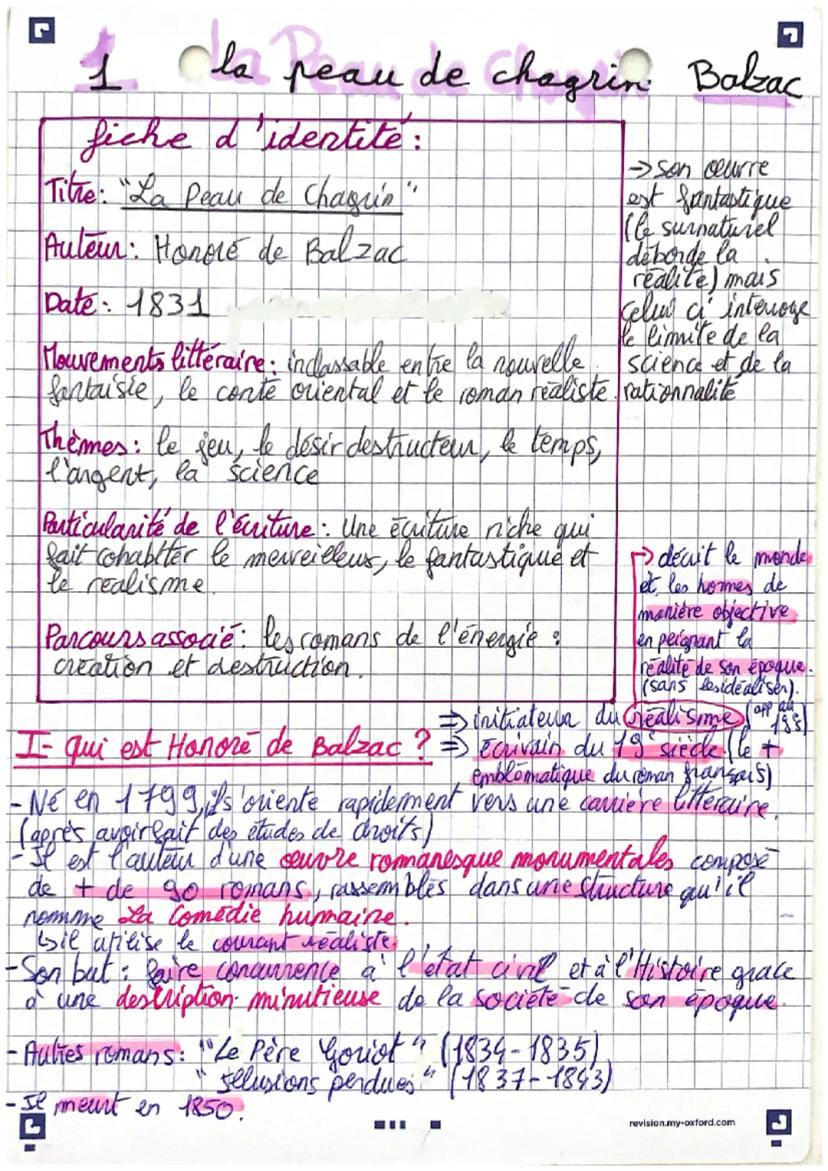 1 la peau de chagrin. Balzac
fiche d'identité :
Titre : "La Peau de Chagrin"
Auteur : Honoré de Balzac
Date : 1831
Mouvements littéraire : inclassable entre la nouvelle
fantaisie, le conte oriental et le roman réaliste.
Thèmes : le jeu, le désir destructeur, le temps,
l'argent, la science
Particularité de l'écriture : Une écriture riche qui
fait cohabiter le merveilleux, le fantastique et
le realisme.
Parcours associé : les romans de l'énergie :
création et destruction.
→ son œuvre
est fantastique
(le surnaturel
déborde la
réalité) mais
celui ci interroge
le limite de la
science et de la
rationnalité
→ décrit le monde
et les hommes de
manière objective
en peignant la
réalité de son époque.
(sans les idéaliser).
⇒ initiateur du réalisme (app au
I- qui est Honoré de Balzac ? ⇒ Écrivain du 19e siècle (le +
emblématique du roman français)
- Né en 1799, il s'oriente rapidement vers une carrière littéraire.
(après avoir fait des études de droits)
- Il est l'auteur d'une œuvre romanesque monumentales composé
de + de 90 romans, rassemblés dans une structure qu'il
nomme La Comédie humaine.
↳ il utilise le courant réaliste.
- Son but : faire concurrence à l'état civil et à l'Histoire grace
à une description minutieuse de la société de son époque.
- Autres romans : "Le Père Goriot" (1834-1835)
"Illusions perdues" (1837-1843)
- Il meurt en 1850.
revision.my-oxford.com